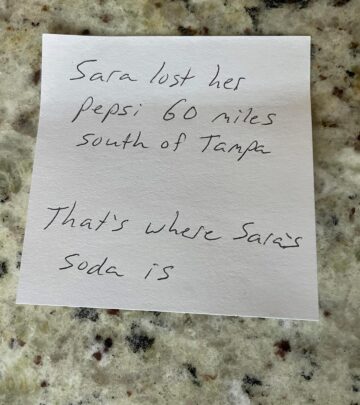 Sara lost her
pepsi 60 miles
south of Tampa
That's where Sara's
soda is